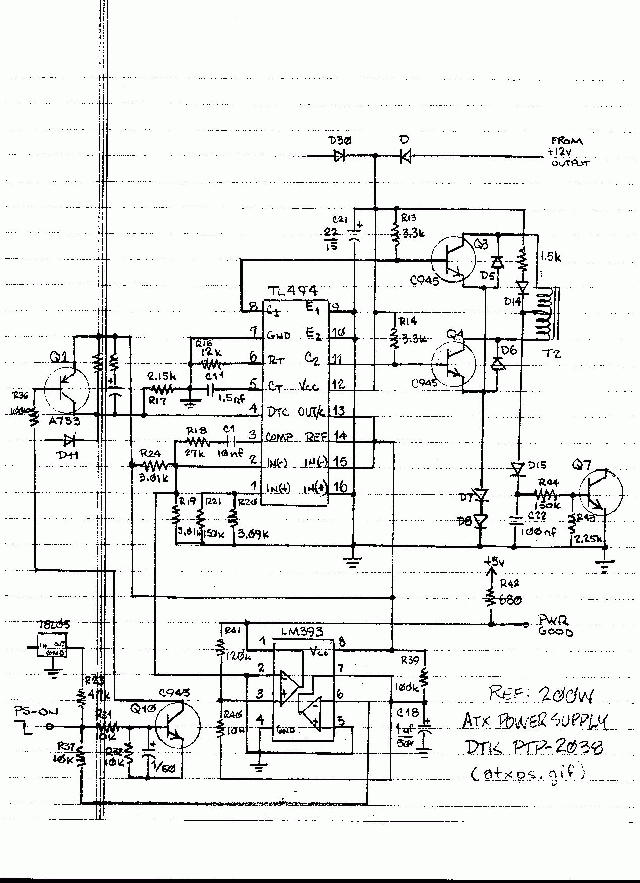 D30
D
FROM
+12V
OUTPUT
C21
22
15
R13
3.3k
Q3
C945
D5
1.5k
D14
T2
TL494
8 C1 E1 9
7 GND E2 10
6 RT C2 11
5 CT VCC 12
4 DTC OUT/C 13
3 COMP REF 14
2 IN(-) IN(-) 15
1 IN(+) IN(+) 16
R14
3.3k
Q4
C945
D6
Q1
A733
D11
R36
R16
12k
C11
1.5nf
2.15k
R17
R18
27k
C1
10nf
R24
3.01k
R19
R21
150k
R20
3.09k
D7
D8
D15
R44
150k
Q7
C22
100nf
R43
2.25k
+5V
R42
680
PWR
GOOD
78L05
IN OUT
GND
R41
120k
LM393
1 VCC 8
2 7
3 6
4 GND 5
R39
100k
C18
1uf
50V
R40
PS-ON
R31
R37
10k
10k
Q10
C945
1/50
REF: 200W
ATX POWER SUPPLY
DTK PTP-2038
(atxps.gif)